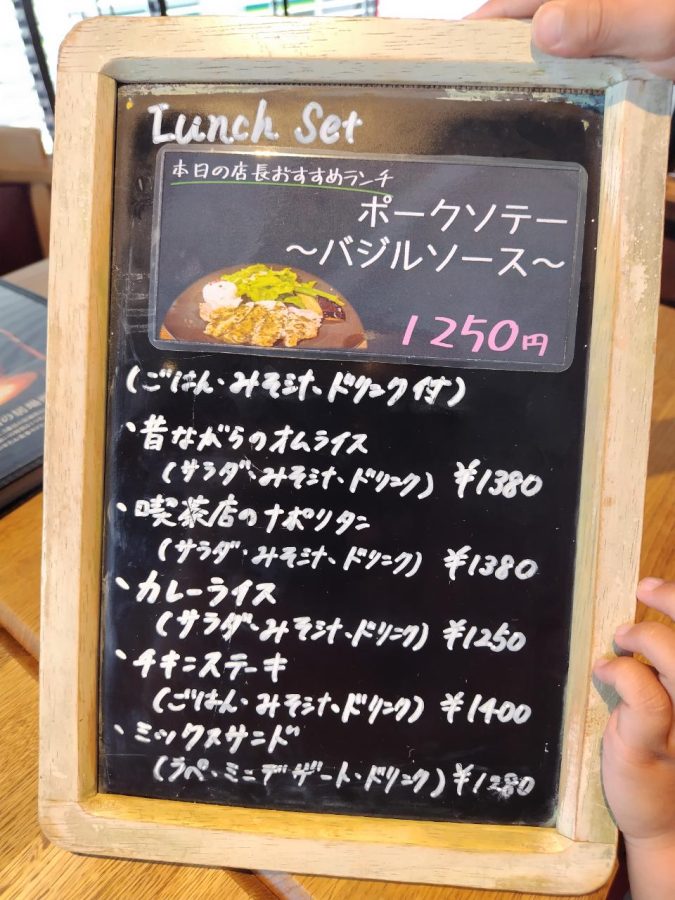 Lunch Set
本日の店長おすすめランチ
ポークソテー
～バジルソース～
1250円
(ごはん・みそ汁・ドリンク付)
・昔ながらのオムライス
(サラダ・みそ汁・ドリンク) ¥1380
・喫茶店のナポリタン
(サラダ・みそ汁・ドリンク) ¥1380
・カレーライス
(サラダ・みそ汁・ドリンク) ¥1250
・チキンステーキ
(ごはん・みそ汁・ドリンク) ¥1400
・ミックスサンド
(ラペ・ミニデザート・ドリンク) ¥1280